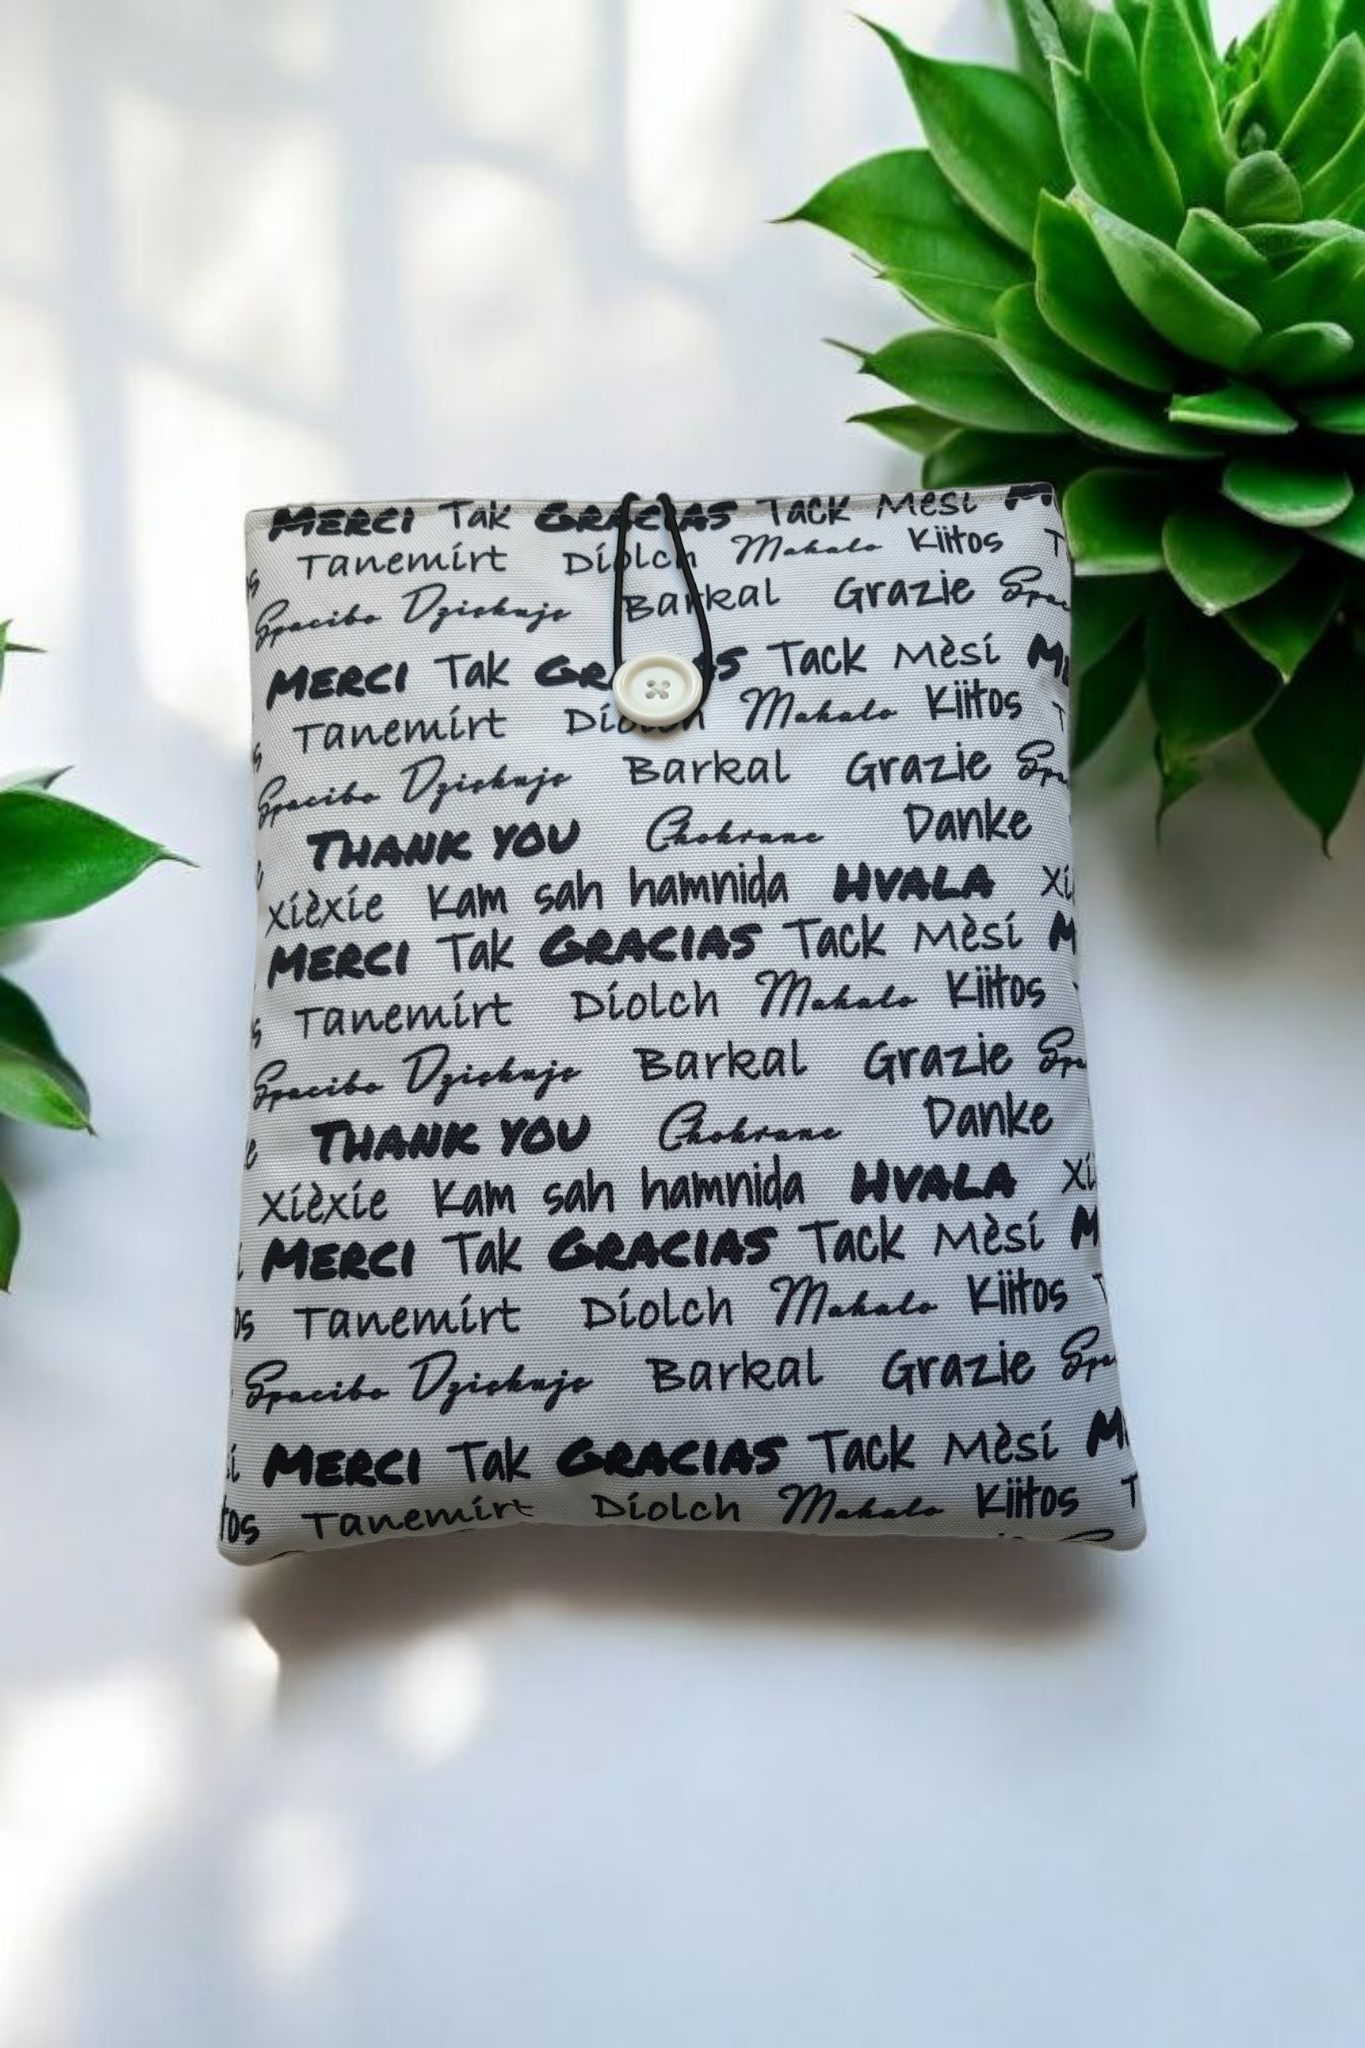 MERCI Tak GRACIAS Tack Mèsí M
s Tanemírt Díolch Mahalo Kiitos T
Spacibo Dziękuję Barkal Grazie Spac
MERCI Tak GR S Tack Mèsí ME
s Tanemírt Dío h Mahalo Kiitos T
Spacibo Dziękuję Barkal Grazie Spa
THANK YOU Chokrane Danke
Xièxíe Kam sah hamnida HVALA Xí
MERCI Tak GRACIAS Tack Mèsí M
s Tanemírt Díolch Mahalo Kiitos
Spacibo Dziękuję Barkal Grazie Spa
e THANK YOU Chokrane Danke
Xíèxíe Kam sah hamnida HVALA Xí
í MERCI Tak GRACIAS Tack Mèsí M
os Tanemírt Díolch Mahalo Kiitos T
Spacibo Dziękuję Barkal Grazie Spa
sí MERCI Tak GRACIAS Tack Mèsí M
tos Tanemírt Díolch Mahalo Kiitos T